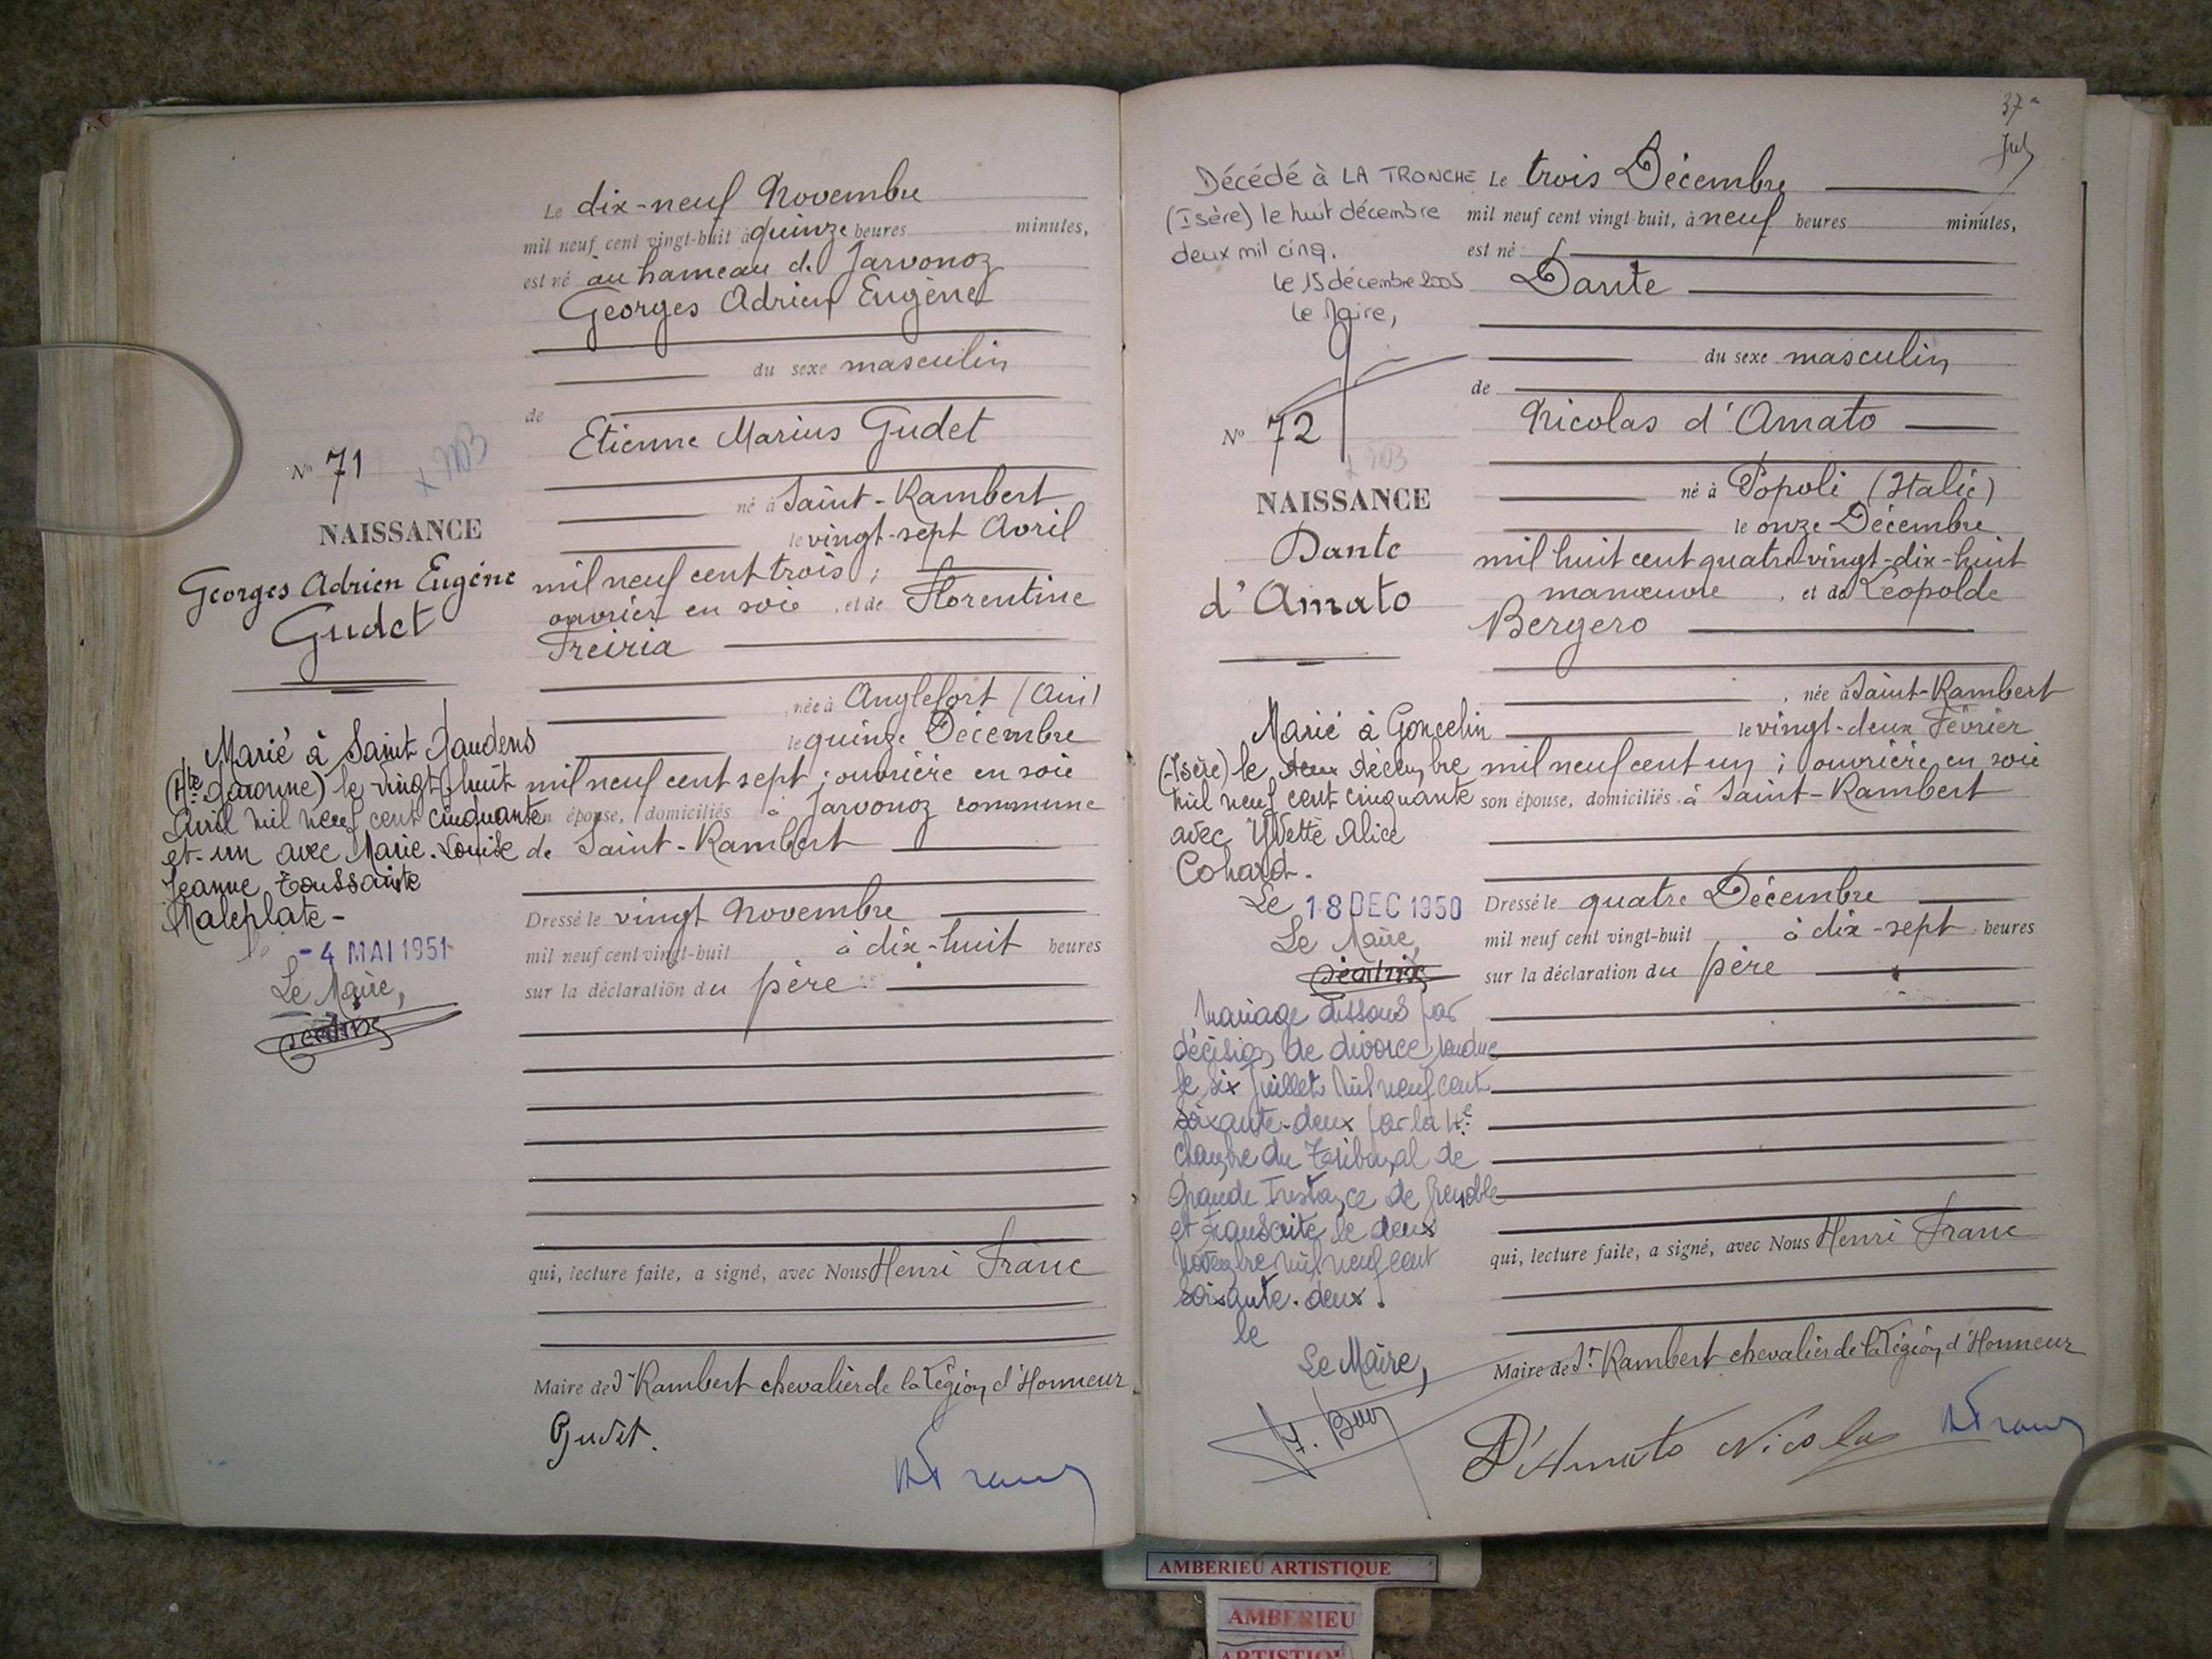 Le dix-neuf Novembre
mil neuf cent vingt-huit à quinze heures minutes,
est né au hameau de Javornoz
Georges Adrien Eugène
du sexe masculin
de
Etienne Marius Gudet
né à Saint-Rambert
le vingt-sept Avril
mil neuf cent trois ;
ouvrier en soie , et de Florentine
Freiria
née à Anglefort (Ain)
le quinze Décembre
mil neuf cent sept ; ouvrière en soie
son épouse, domiciliés à Javornoz commune
de Saint-Rambert
Dressé le vingt Novembre
mil neuf cent vingt-huit à dix-huit heures
sur la déclaration du père
qui, lecture faite, a signé, avec Nous Henri Franc
Maire de St Rambert chevalier de la Légion d'Honneur
Gudet.
No 71
NAISSANCE
Georges Adrien Eugène
Gudet
Marié à Saint Gaudens
(Hte Garonne) le vingt-huit
Avril mil neuf cent cinquante
et-un avec Marie-Louise
Jeanne Toussainte
Maleplate-
le -4 MAI 1951
Le Maire,
37
Le trois Décembre
mil neuf cent vingt-huit, à neuf heures minutes,
est né
Dante
du sexe masculin
de
Nicolas d'Amato
né à Popoli (Italie)
le onze Décembre
mil huit cent quatre-vingt-dix-huit
manœuvre , et de Léopolde
Bergero
, née à Saint-Rambert
le vingt-deux Février
mil neuf cent un ; ouvrière en soie
son épouse, domiciliés à Saint-Rambert
Dressé le quatre Décembre
mil neuf cent vingt-huit à dix-sept heures
sur la déclaration du père
qui, lecture faite, a signé, avec Nous Henri Franc
Maire de St Rambert chevalier de la Légion d'Honneur
D'Amato Nicola
Décédé à LA TRONCHE
(Isère) le huit décembre
deux mil cinq.
Le 15 décembre 2005
Le Maire,
No 72
NAISSANCE
Dante
d'Amato
Marié à Goncelin
(Isère) le deux décembre
mil neuf cent cinquante
avec Yvette Alice
Cohard.
Le 18 DEC 1950
Le Maire,
Mariage dissous par
décision de divorce rendue
le six Juillet mil neuf cent
soixante-deux par la
chambre du Tribunal de
Grande Instance de Grenoble
et transcrite le deux
Novembre mil neuf cent
soixante-deux.
le
Le Maire,
AMBERIEU ARTISTIQUE
AMBERIEU
ARTISTIQUE